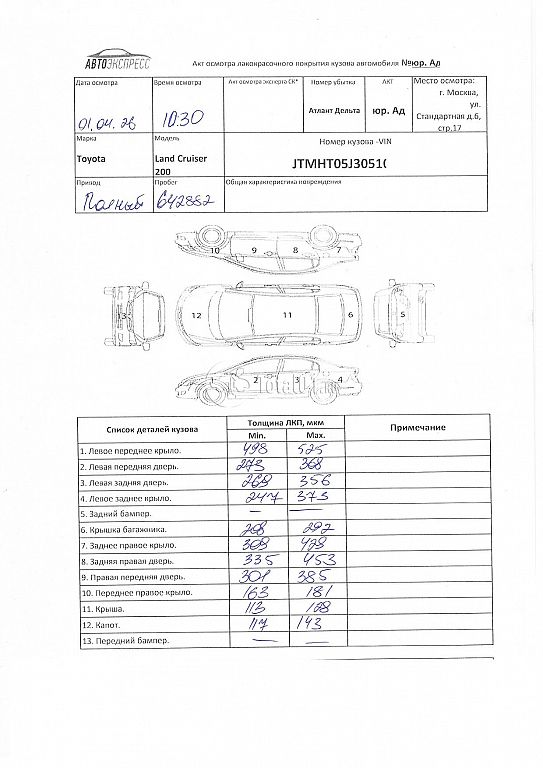 АВТОЭКСПРЕСС
Акт осмотра лакокрасочного покрытия кузова автомобиля №юр. Ад
Дата осмотра Время осмотра Акт осмотра эксперта СК* Номер убытка АКТ Место осмотра:
01.04.26 10:30 Атлант Дельта юр. Ад г. Москва,
ул.
Стандартная д.6,
стр.17
Марка Модель Номер кузова -VIN
Toyota Land Cruiser
200
JTMHT05J3051
Привод Пробег Общая характеристика повреждений
Полный 642882
10 9 8 7
13 12 11 6 5
1 2 3 4
Список деталей кузова Толщина ЛКП, мкм Примечание
Min. Max.
1. Левое переднее крыло. 498 525
2. Левая передняя дверь. 273 368
3. Левая задняя дверь. 269 356
4. Левое заднее крыло. 247 373
5. Задний бампер. — —
6. Крышка багажника. 208 292
7. Заднее правое крыло. 309 429
8. Задняя правая дверь. 335 453
9. Правая передняя дверь. 301 385
10. Переднее правое крыло. 163 181
11. Крыша. 113 128
12. Капот. 117 143
13. Передний бампер. — —